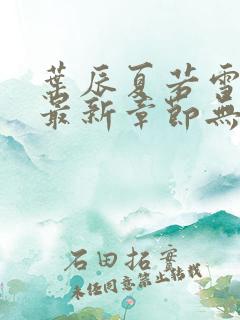 葉辰夏若雪
最新章節無
石田拓實
未経同意禁止轉載